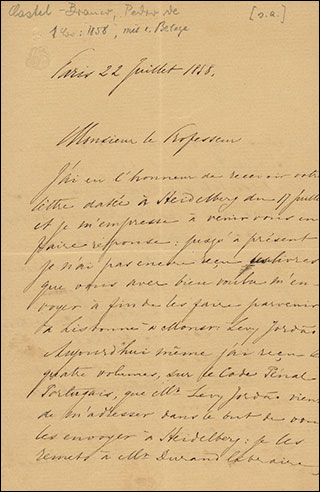 Castel-Branco, Pedro de [s.a.]
1 Br: 1858, mit 1 Beilage
Paris 22 Juillet 1858.
Monsieur le Professeur
J'ai eu l'honneur de recevoir votre
lettre datée à Heidelberg du 17 Juillet
et je m'empresse à venir vous en
faire réponse: jusqu'à présent
je n'ai pas encore reçu les livres
que vous avez bien voulu m'en-
voyer à fin de les faire parvenir
à Lisbonne à Monsr Levy Jordão
Aujourd'hui même j'ai reçu
quatre volumes, sur le Code Pénal
Portugais, que Mr Levy Jordão vien
de m'adresser dans le but de vou
les envoyer à Heidelberg: je les
remets à Mr Durand libraire